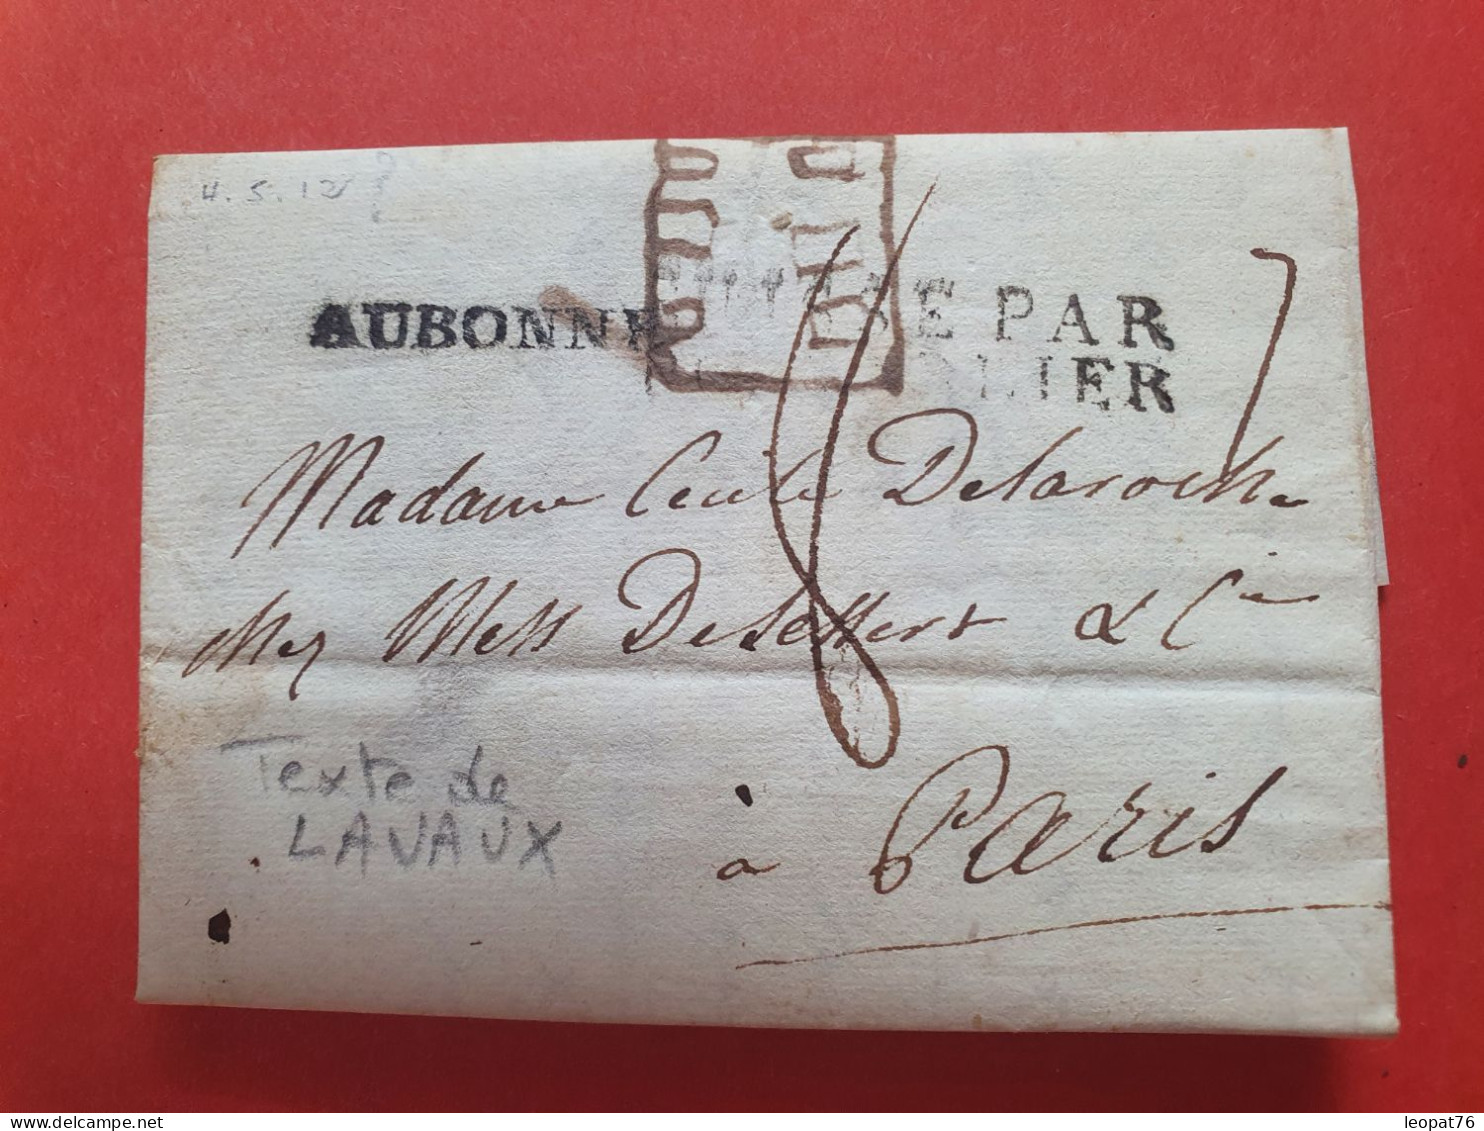 4.5.12 ?
AUBONNE
SE PAR
LIER
Madame Cecile Delaroche
chez Mess Delessert & Cie
à Paris
Texte de
LAVAUX
www.delcampe.net
leopat76